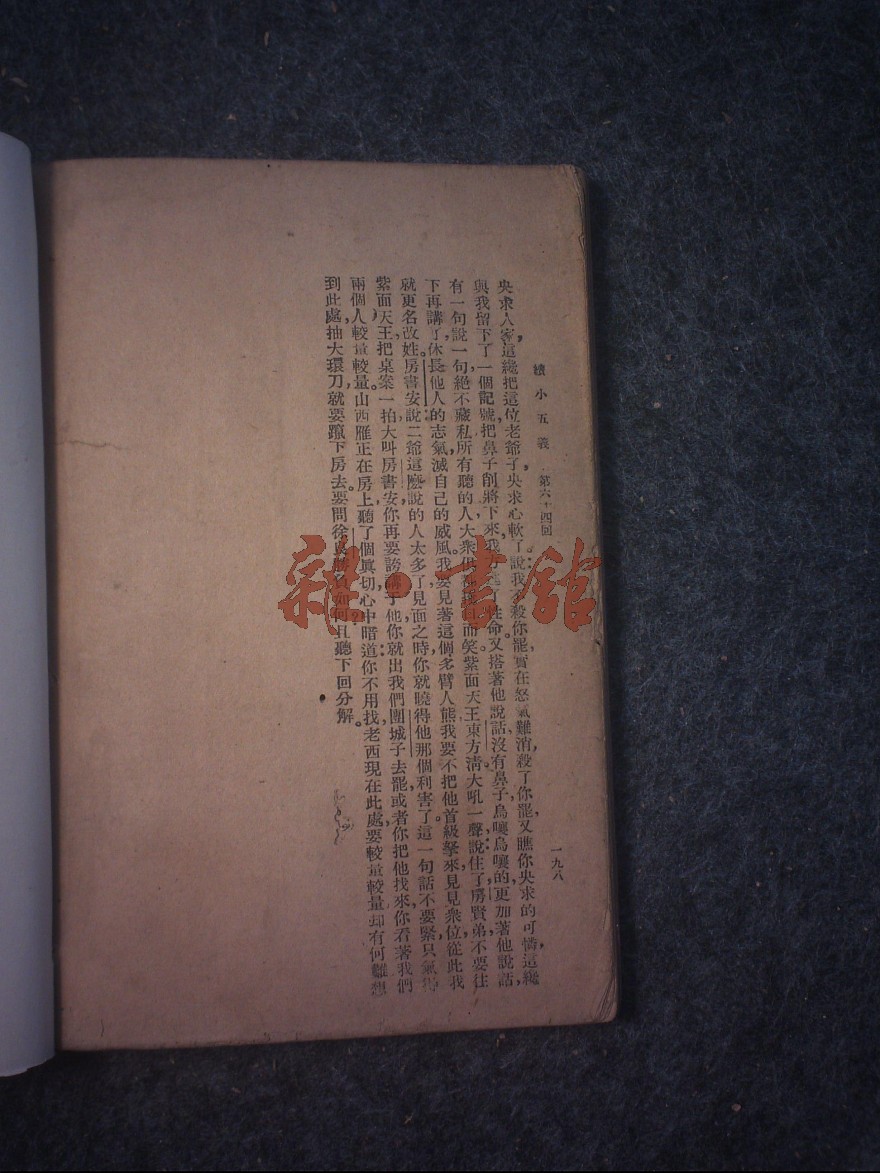 續小五義 第六十四回
一九八
央求人家,這纔把這位老爺子央求心軟了,說:我不殺你罷,實在怒氣難消,殺了你罷,又瞧你央求的可憐,這纔
與我留下了一個記號,把鼻子削將下來,我 性命。又搭著他說話,沒有鼻子,烏嚷烏嚷的,更加著他說話,
有一句說一句,絕不藏私,所有聽的人大衆 而笑。紫面天王東方清大吼一聲,說:住了,房賢弟,不要往
下再講了,休長他人的志氣,滅自己的威風。我要見著這個多臂人熊,我要不把他首級拏來見見衆位,從此我
就更名改姓。房書安說:二爺,這麽說的人太多了,見面之時,你就曉得他那個利害了。這一句話不要緊,只氣得
紫面天王把桌案一拍,大叫:房書安,你再要誇講于他,你就出我們團城子去罷,或者你把他找來,你看著我們
兩個人較量較量。山西雁正在房上聽了個眞切,心中暗道:你不用找,老西現在此處,要較量較量,却有何難?想
到此處,抽大環刀,就要躥下房去。要問徐良勝負如何,且聽下回分解。
雜·書館